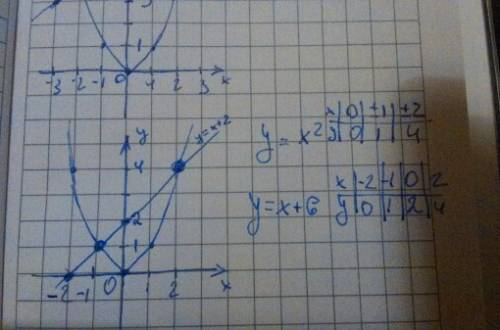 3
1
-3 -2 -1 0 1 2 3 x
y
y=x+2
4
2
1
-2 -1 0 1 2 x
y = x²
x | 0 | ±1 | ±2
y | 0 | 1 | 4
y=x+6
x | -2 | -1 | 0 | 2
y | 0 | 1 | 2 | 4